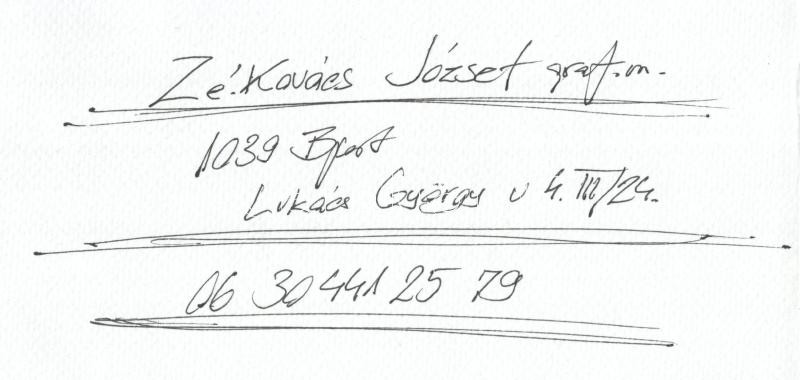 Zé.Kovács József graf.m.
1039 Bpest
Lukács György u 4. III/24.
06 30 441 25 79